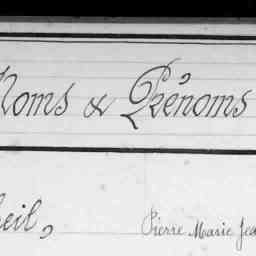 Noms & Prénoms
heil, Pierre Marie Jea